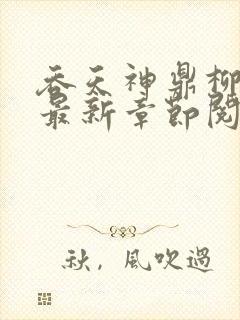 吞天神鼎柳
最新章節閱
秋，風吹過